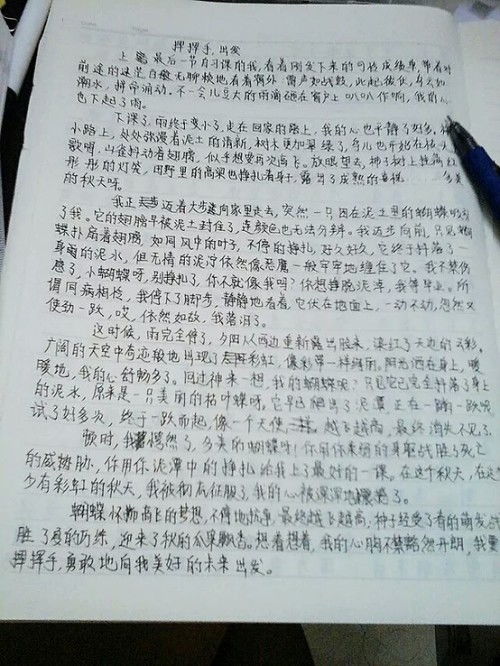 挥挥手,出发
上最后一节自习课的我,看着刚发下来的可怜成绩单,带着对
前途的迷茫百般无聊赖地看着窗外,雷声如战鼓,此起彼伏,乌云如
潮水,拼命涌动。不一会儿豆大的雨滴砸在窗户上叭叭作响,我的心
也下起了雨。
下课了,雨终于变小了,走在回家的路上,我的心也平静了好多,
小路上,处处弥漫着泥土的清新,树木更加翠绿了,鸟儿也开始在枝头
歌唱,山雀抖动着翅膀,似乎想要再次高飞。放眼望去,柿子树上挂满红
彤彤的灯笼,田野里的高粱也挣扎着身子,露出了成熟的喜悦 多美
的秋天呀。
我正迈着大步迳向家里走去,突然一只困在泥土里的蝴蝶吸引
了我。它的翅膀早被泥土封住了,连颜色也无法分辨。我迈步向前,只见蝴
蝶扑扇着翅膀,如同风中的叶子,不停的挣扎,好久好久,它终于抖落了一
身的泥水,但无情的泥泞依然像恶魔一般牢牢地缠住了它。我不禁伤
感了,小蝴蝶呀,别挣扎了,你不就像我吗?你想挣脱泥泞,我等毕业。所
谓同病相怜,我停下了脚步,静静地看着,它伏在地面上,一动不动,忽然又
使劲一跃,哎,依然如故,我落泪了。
这时候,雨完全停了,夕阳从西边重新露出脸来,染红了天边的云彩。
广阔的天空中奇迹般地出现了彩虹,像彩带一样绚丽。阳光洒在身上,暖
暖地,我的心舒畅多了。回过神来一想,我的蝴蝶呢?只见它已完全抖落了身上
的泥水,原来是一只美丽的枯叶蝶呀。它早已爬出了泥潭 正在一蹦一跃呢
试了好多次,终于一跃而起,像一个天使 越飞越高,最终消失不见了。
顿时,我愕然了,多美的蝴蝶呀!你用你柔弱的身躯战胜了死亡
的威胁,你用你泥潭中的挣扎给我上了最好的一课。在这个秋天,在这
少有彩虹的秋天,我被彻底征服了,我的心被深深地震惊了。
蝴蝶怀揣高飞的梦想,不停地抗争,最终越飞越高;种子经受了春的萌发,战
胜了夏的历练,迎来了秋的瓜果飘香。想着想着,我的心胸不禁豁然开朗,我要
挥挥手,勇敢地向我美好的未来出发。